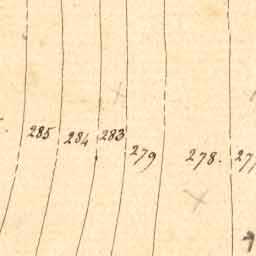 285 284 283 279 278. 27